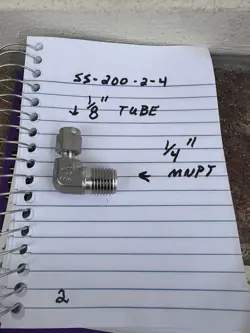 SS-200-2-4
↓ 1/8" TUBE
1/4"
← MNPT
2